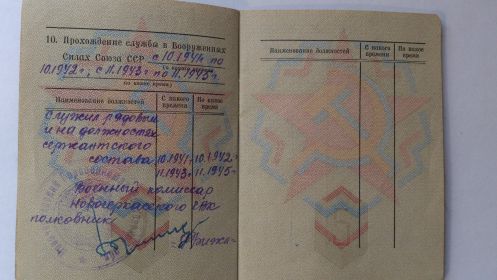 10. Прохождение службы в Вооруженных
Силах Союза ССР с 10.1941 по
10.1942г, с 11.1943г по 11.1945г.
(по какое время)
Наименование должностей
С какого времени
По какое время
Служил рядовым
и на должностях
сержантского
состава 10.1941 10.1942г
11.1943г 11.1945г
Военный комиссар
Новочеркасского ГВК
полковник
Наименование должностей
С какого времени
По какое время